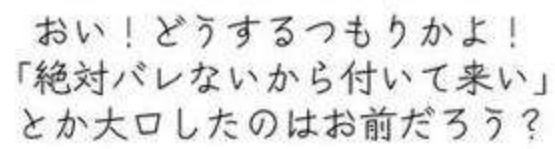 おい！どうするつもりかよ！
「絶対バレないから付いて来い」
とか大口したのはお前だろう？